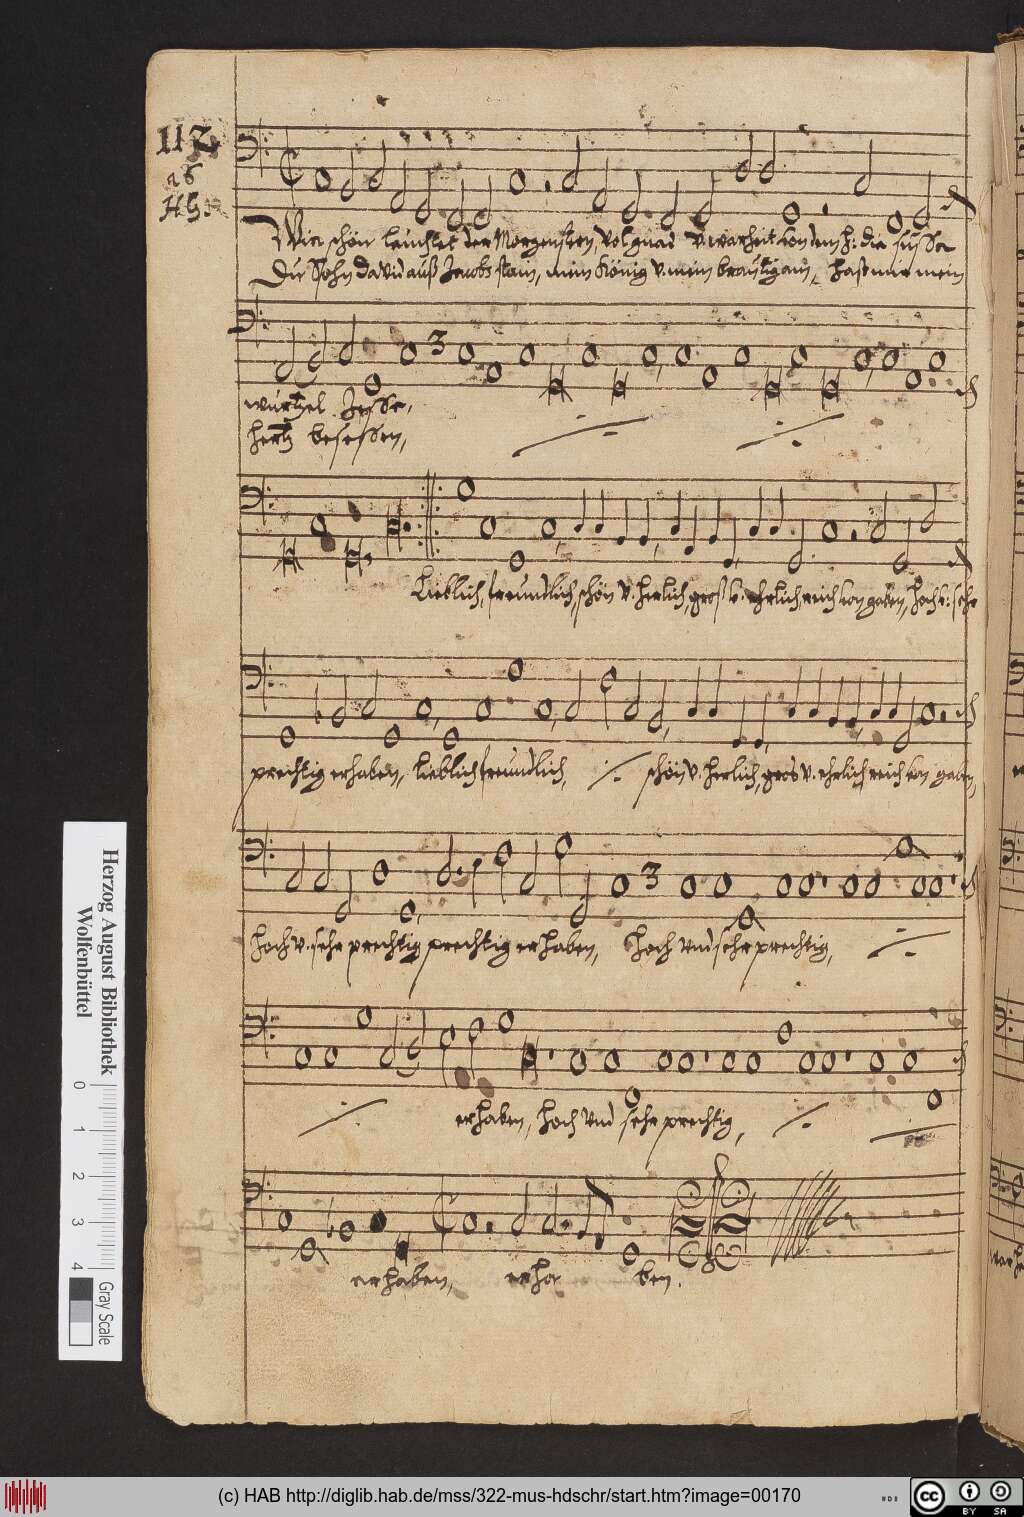 112
a6
HG.
Wie schön leuchtet der Morgenstern, vol gnad v. warheit von dem h: die süsse
Du Sohn David auß Jacobs stam, mein König v. mein breutigam, hast mir mein
3
wurtzel Jesse,
hertz besessen,
Lieblich, freundlich, schön v. herlich, groß v. ehrlich, reich von gaben, hoch v: sehr
prechtig erhaben, lieblich freundlich, schön v. herlich, gros v. ehrlich reich von gaben,
3
hoch v. sehr prechtig prechtig erhaben, hoch vnd sehr prechtig,
erhaben, hoch vnd sehr prechtig,
erhaben, erha ben.
Herzog August Bibliothek
Wolfenbüttel
0 1 2 3 4
Gray Scale
(c) HAB http://diglib.hab.de/mss/322-mus-hdschr/start.htm?image=00170
cc BY SA